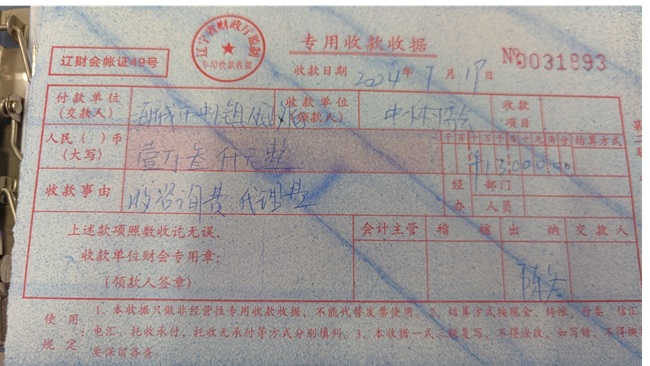 辽宁省财政厅监制
专用收款收据
专用收款收据
辽财会帐证49号
收款日期 2024年7月17日
№0031893
付款单位
(交款人)
收款单位
(领款人)
收款
项目
人民( )币
(大写)
壹万叁仟元整
千百十万千百十元角分
结算方式
¥13000.00
收款事由
收咨询费 代理费
经 部门
办 人员
上述款项照数收讫无误。
收款单位财会专用章:
(领款人签章)
会计主管
稽核
出纳
交款人
使用
规定
1、本收据只做非经营性专用收款收据,不能代替发票使用。2、结算方式按现金、转帐、付委、信汇
电汇、托收承付、托收无承付等方式分别填列。3、本收据一式三联复写,不得涂改,如写错,不得撕
要保留备查